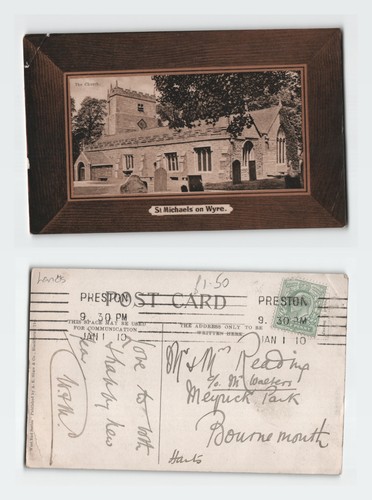 The Church.
St Michaels on Wyre.
Lancs
£1.50
POST CARD
PRESTON
9. 30 PM
JAN 1 10
PRESTON
9. 30 PM
JAN 1 10
THIS SPACE MAY BE USED
FOR COMMUNICATION
THE ADDRESS ONLY TO BE
WRITTEN HERE
Love to both
& happy New
Year
Mr & Mrs Reading
c/o Mr Walters
Meyrick Park
Bournemouth
Hants